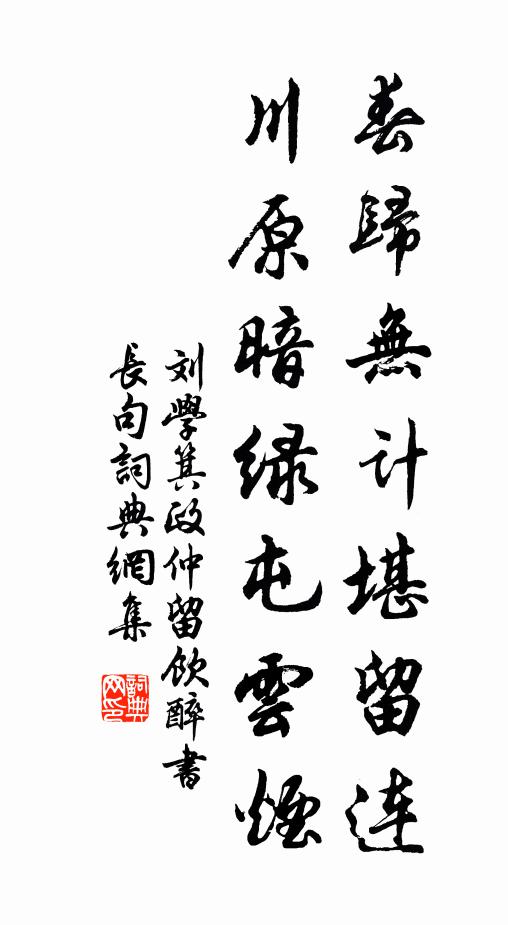 春歸無計堪留連
川原暗緑屯雲煙
刘學箕政仲留飲醉書
長句詞典網集
詞典
网印